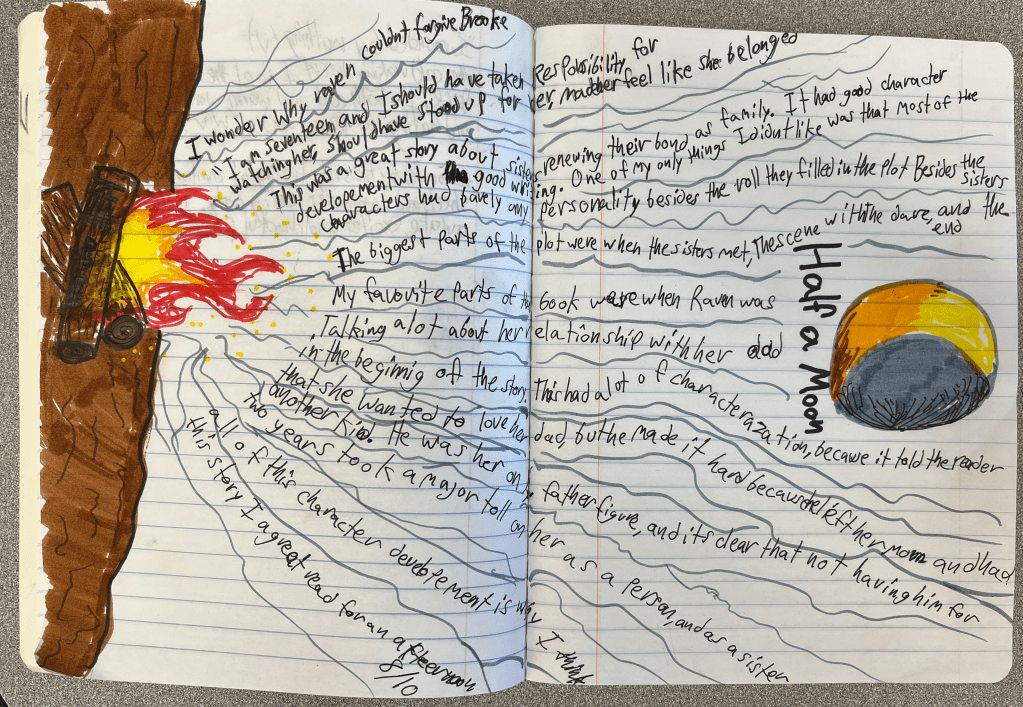 I wonder why raven couldnt forgive Brooke
"I am seventeen and I should have taken responsibility for
watching her, should have stood up for her, made her feel like she belonged
This was a great story about sisters renewing their bond as family. It had good character
developement with good writing. One of my only things I didnt like was that most of the
characters had barely any personality besides the roll they filled in the plot Besides the sisters
The biggest parts of the plot were when the sisters met, The scene with the dare, and the end
Half a Moon
My favorite parts of the book were when Raven was
Talking alot about her relationship with her dad
in the beginnig off the story. This had alot of characterazation, because it told the reader
that she wanted to love her dad, but he made it hard because he left her mom and had
another kid. He was her only father figure, and its clear that not having him for
two years took a major toll on her as a person, and as a sister
all of this character developement is why I think
this story I a great read for an afternoon
8/10